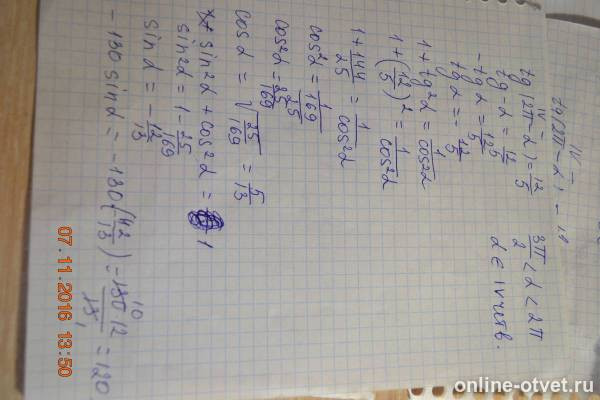 IV -
tg(2π-α) =
3π/2 < α < 2π
α ∈ IV четв.
IV -
tg(2π-α) = 12/5
tg-α = 12/5
-tgα = 12/5
tgα = -12/5
1+tg²α = 1/cos²α
1+(12/5)² = 1/cos²α
1+144/25 = 1/cos²α
cos²α = 1/169/25
cos²α = 25/169
cosα = √25/169 = 5/13
sin²α + cos²α = 1
sin²α = 1 - 25/169
sinα = -12/13
-130sinα = -130(-12/13) = 130·12/13 = 120
10
1
07.11.2016 13:50
online-otvet.ru